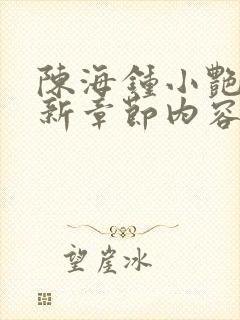 陳海鍾小艷
新章節內容
望崖冰